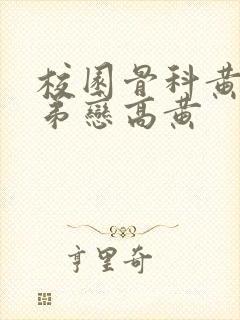 校園骨科黃
弟戀高黃
亨里奇